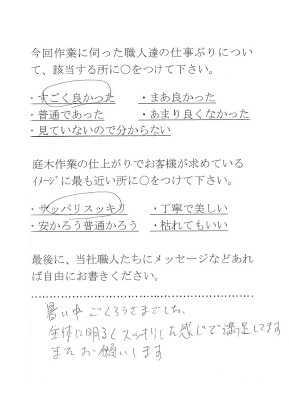 今回作業に伺った職人達の仕事ぶりについ
て、該当する所に○をつけて下さい。
・すごく良かった ・まあ良かった
・普通であった ・あまり良くなかった
・見ていないので分からない
庭木作業の仕上がりでお客様が求めている
ｲﾒｰｼﾞに最も近い所に○をつけて下さい。
・サッパリスッキリ ・丁寧で美しい
・安かろう普通かろう ・枯れてもいい
最後に、当社職人たちにメッセージなどあれ
ば自由にお書きください。
暑い中、ごくろうさまでした。
全体に明るくスッキリした感じで満足してます
またお願いします